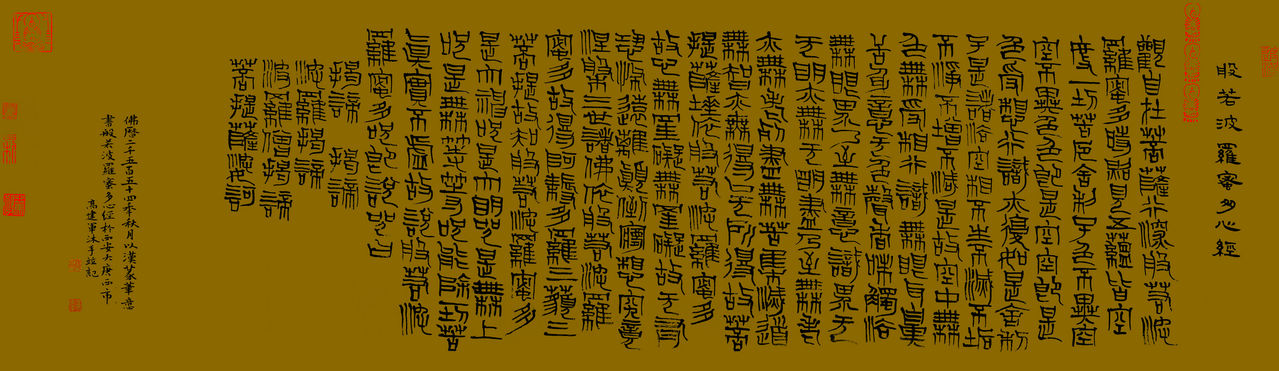 般若波羅蜜多心經
觀自在菩薩行深般若波
羅蜜多時照見五蘊皆空
度一切苦厄舍利子色不異空
空不異色色即是空空即是
色受想行識亦復如是舍利
子是諸法空相不生滅不垢
不淨不增不減是故空中無
色無受想行識無眼耳鼻
舌身意无色聲香味觸法
無眼界乃至無意識界无
无明亦無无明盡乃至無老
亦無老死盡無苦集滅道
無智亦無得以无所得故菩
提薩埵依般若波羅蜜多
故心無罣礙無罣礙故无有
恐怖遠離顛倒夢想究竟
涅槃三世諸佛依般若波羅
蜜多故得阿耨多羅三藐三
菩提故知般若波羅蜜多
是大神咒是大明咒是無上
咒是無等等咒能除一切苦
真實不虛故說般若波
羅蜜多咒即說咒曰
揭諦 揭諦
波羅揭諦
波羅僧揭諦
菩提薩婆訶
佛曆二千五百五十四年秋月以漢篆筆意
書般若波羅蜜多心經於西安大唐西市
高建軍沐手並記